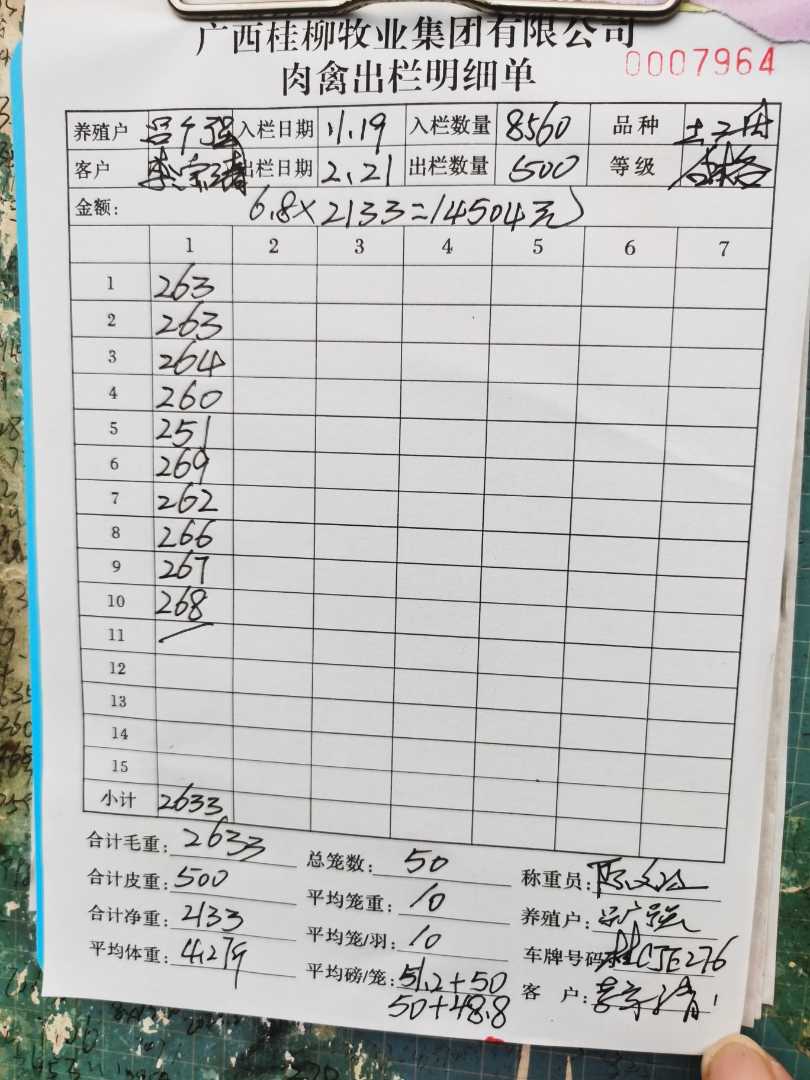 广西桂柳牧业集团有限公司
肉禽出栏明细单 0007964
养殖户 吕广强 入栏日期 11.19 入栏数量 8560 品种 土2
客户 李宗清 出栏日期 2.21 出栏数量 500 等级 合格
金额: 6.8×2133=14504元
1 2 3 4 5 6 7
1 263
2 263
3 264
4 260
5 251
6 269
7 262
8 266
9 267
10 268
11
12
13
14
15
小计 2633
合计毛重: 2633 总笼数: 50 称重员:
合计皮重: 500 平均笼重: 10 养殖户: 吕广强
合计净重: 2133 平均笼/羽: 10 车牌号码: 桂CJE276
平均体重: 4.279 平均磅/笼: 51.2+50 客户: 李宗清
50+48.8